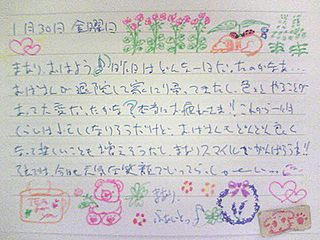 1月30日 金曜日
まおり、おはよう♪ 昨日はどんな一日だったのかなぁ…
おばさんが退院して家に戻ってきたし、色々やることが
あって大変だったかな? 本当にお疲れさま!! これから一ヶ月
くらいは忙しくなりそうだけど、おばさんもどんどん良く
なって楽しいことも増えるだろうし、まおりスマイルでがんばろう!!
それでは、今日も元気な笑顔でいってらっしゃーい
TEA
まおり、
ふぁいとっ♪